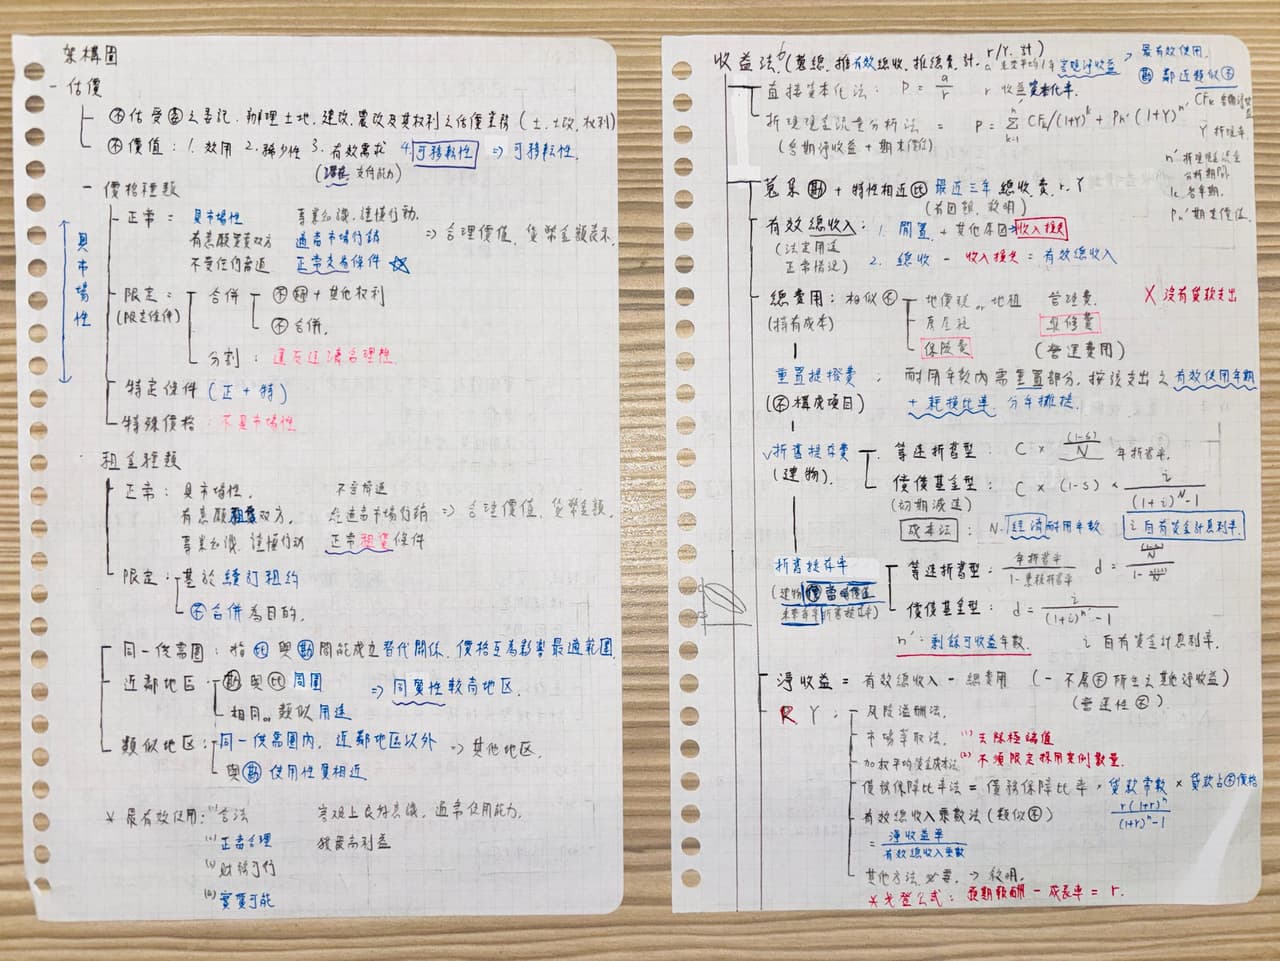 架構圖
一 估價
不估受委之登記、辦理土地、建改、農改及其權利之估價業務 (土、土改、權利)
不價值：1. 效用 2. 稀少性 3. 有效需求 4. 可移轉性 ⇒ 可移轉性.
(支付能力)
一 價格種類
具市場性
正常 = 具市場性 專業知識、謹慎行動.
有意願買賣雙方 適當市場行銷 ⇒ 合理價值、貨幣金額表示.
不受任何脅迫 正常交易條件 ☆
限定 = 合併 不 + 其他權利
(限定條件) 不合併.
分割：違反經濟合理性
特定條件 (正 + 特)
特殊價格：不具市場性
租金種類
正常：具市場性. 不受脅迫
有意願租賃雙方. 經適當市場行銷 ⇒ 合理價值、貨幣金額.
專業知識、謹慎行動 正常租賃條件
限定：基於續訂租約
不合併為目的.
同一供需圈：指比與勘間能成立替代關係、價格互為影響最適範圍.
近鄰地區 勘與比周圍 ⇒ 同質性較高地區.
相同or類似用途
類似地區：同一供需圈內，近鄰地區以外 ⇒ 其他地區.
與勘使用性質相近
* 最有效使用：(1) 合法 客觀上良好意識、通常使用能力.
(2) 正當合理 獲最高利益
(3) 財務可行
(4) 實質可能
收益法 (蒐總、推有效總收、推總費、計 r/Y. 計) → 最有效使用.
客觀淨收益 勘鄰近類似不
直接資本化法：P = a/r r 收益資本化率.
折現現金流量分析法 = P = Σ CFk/(1+Y)^k + Pn'/(1+Y)^n'
(各期淨收益 + 期末價值) k=1
CFk 各期淨收益
Y 折現率.
n' 折現現金流量分析期間
k 各年期.
Pn' 期末價值.
蒐集勘 + 特性相近比 最近三年 總收、費、r、Y
(有困難、敘明)
有效總收入：1. 閒置 + 其他原因→收入損失
(法定用途 正常情況) 2. 總收 - 收入損失 = 有效總收入
總費用：相似不 地價稅 or 地租 管理費. X 沒有貸款支出
(持有成本) 房屋稅 維修費
保險費 (營運費用)
重置提撥費：耐用年數內需重置部分，按該支出之有效使用年期
(不構成項目) + 耗損比率、分年攤提.
√折舊提存費 等速折舊型：C × (1-s)/N 年折舊率.
(建物) 償債基金型：C × (1-s) × i/((1+i)^N - 1)
(初期減速)
成本法：N. 經濟耐用年數 i 自有資金計息利率.
折舊提存率 等速折舊型：年折舊率/(1-累積折舊率) d =
(建物價當時價值 未來每年折舊提存率) 償債基金型：d = i/((1+i)^n' - 1)
n'：剩餘可收益年數 i 自有資金計息利率.
淨收益 = 有效總收入 - 總費用 (- 不屬不所生之其他淨收益)
(營運性不)
R Y：風險溢酬法.
市場萃取法. (1) 去除極端值
加權平均資金成本法 (2) 不須限定採用案例數量.
債務保障比率法 = 債務保障比率 × 貸款常數 × 貸款占不價格
有效總收入乘數法 (類似不) r(1+r)^n/((1+r)^n - 1)
= 淨收益率/有效總收入乘數
其他方法 必要. ⇒ 敘明.
* 戈登公式：預期報酬 - 成長率 = r.